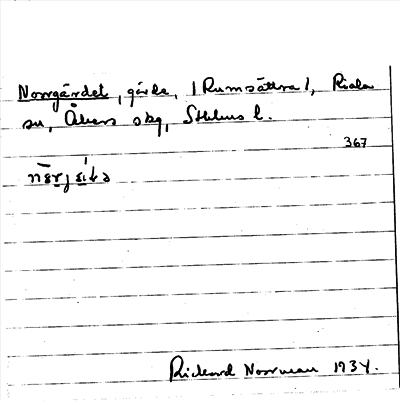 Norrgärdet, gärde, (Rumsättra), Riala
sn, Åkers skg, Sthlms l.
367
Rickard Norrman 1934.